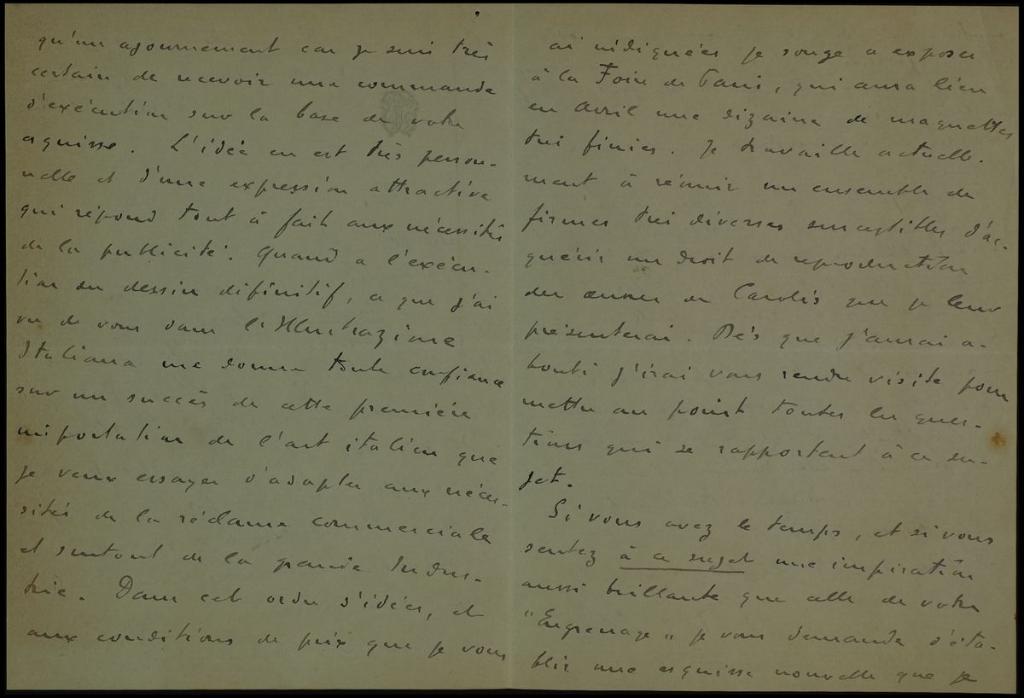 qu'un ajournement car je suis très
certain de recevoir une commande
d'exécution sur la base de votre
esquisse. L'idée en est très person-
nelle et d'une expression attractive
qui répond tout à fait aux nécessités
de la publicité. Quand a l'exécu-
tion du dessin définitif, ce que j'ai
vu de vous dans l'Illustrazione
Italiana me donne toute confiance
sur un succès de cette première
importation de l'art italien que
je veux essayer d'adapter aux néces-
sités de la réclame commerciale
et surtout de la grande Indus-
trie. Dans cet ordre d'idées, et
aux conditions de prix que je vous
ai indiquées je songe a exposer
à la Foire de Paris, qui aura lieu
en Avril une dizaine de maquettes
très finies. Je travaille actuelle-
ment à réunir un ensemble de
firmes très diverses susceptibles d'ac-
quérir un droit de reproduction
des œuvres de Carolis que je leur
présenterai. Dès que j'aurai a-
bouti j'irai vous rendre visite pour
mettre au point toutes les ques-
tions qui se rapportent à ce su-
jet.
Si vous avez le temps, et si vous
sentez à ce sujet une inspiration
aussi brillante que celle de votre
"Engrenage" je vous demande d'éta-
blir une esquisse nouvelle que je